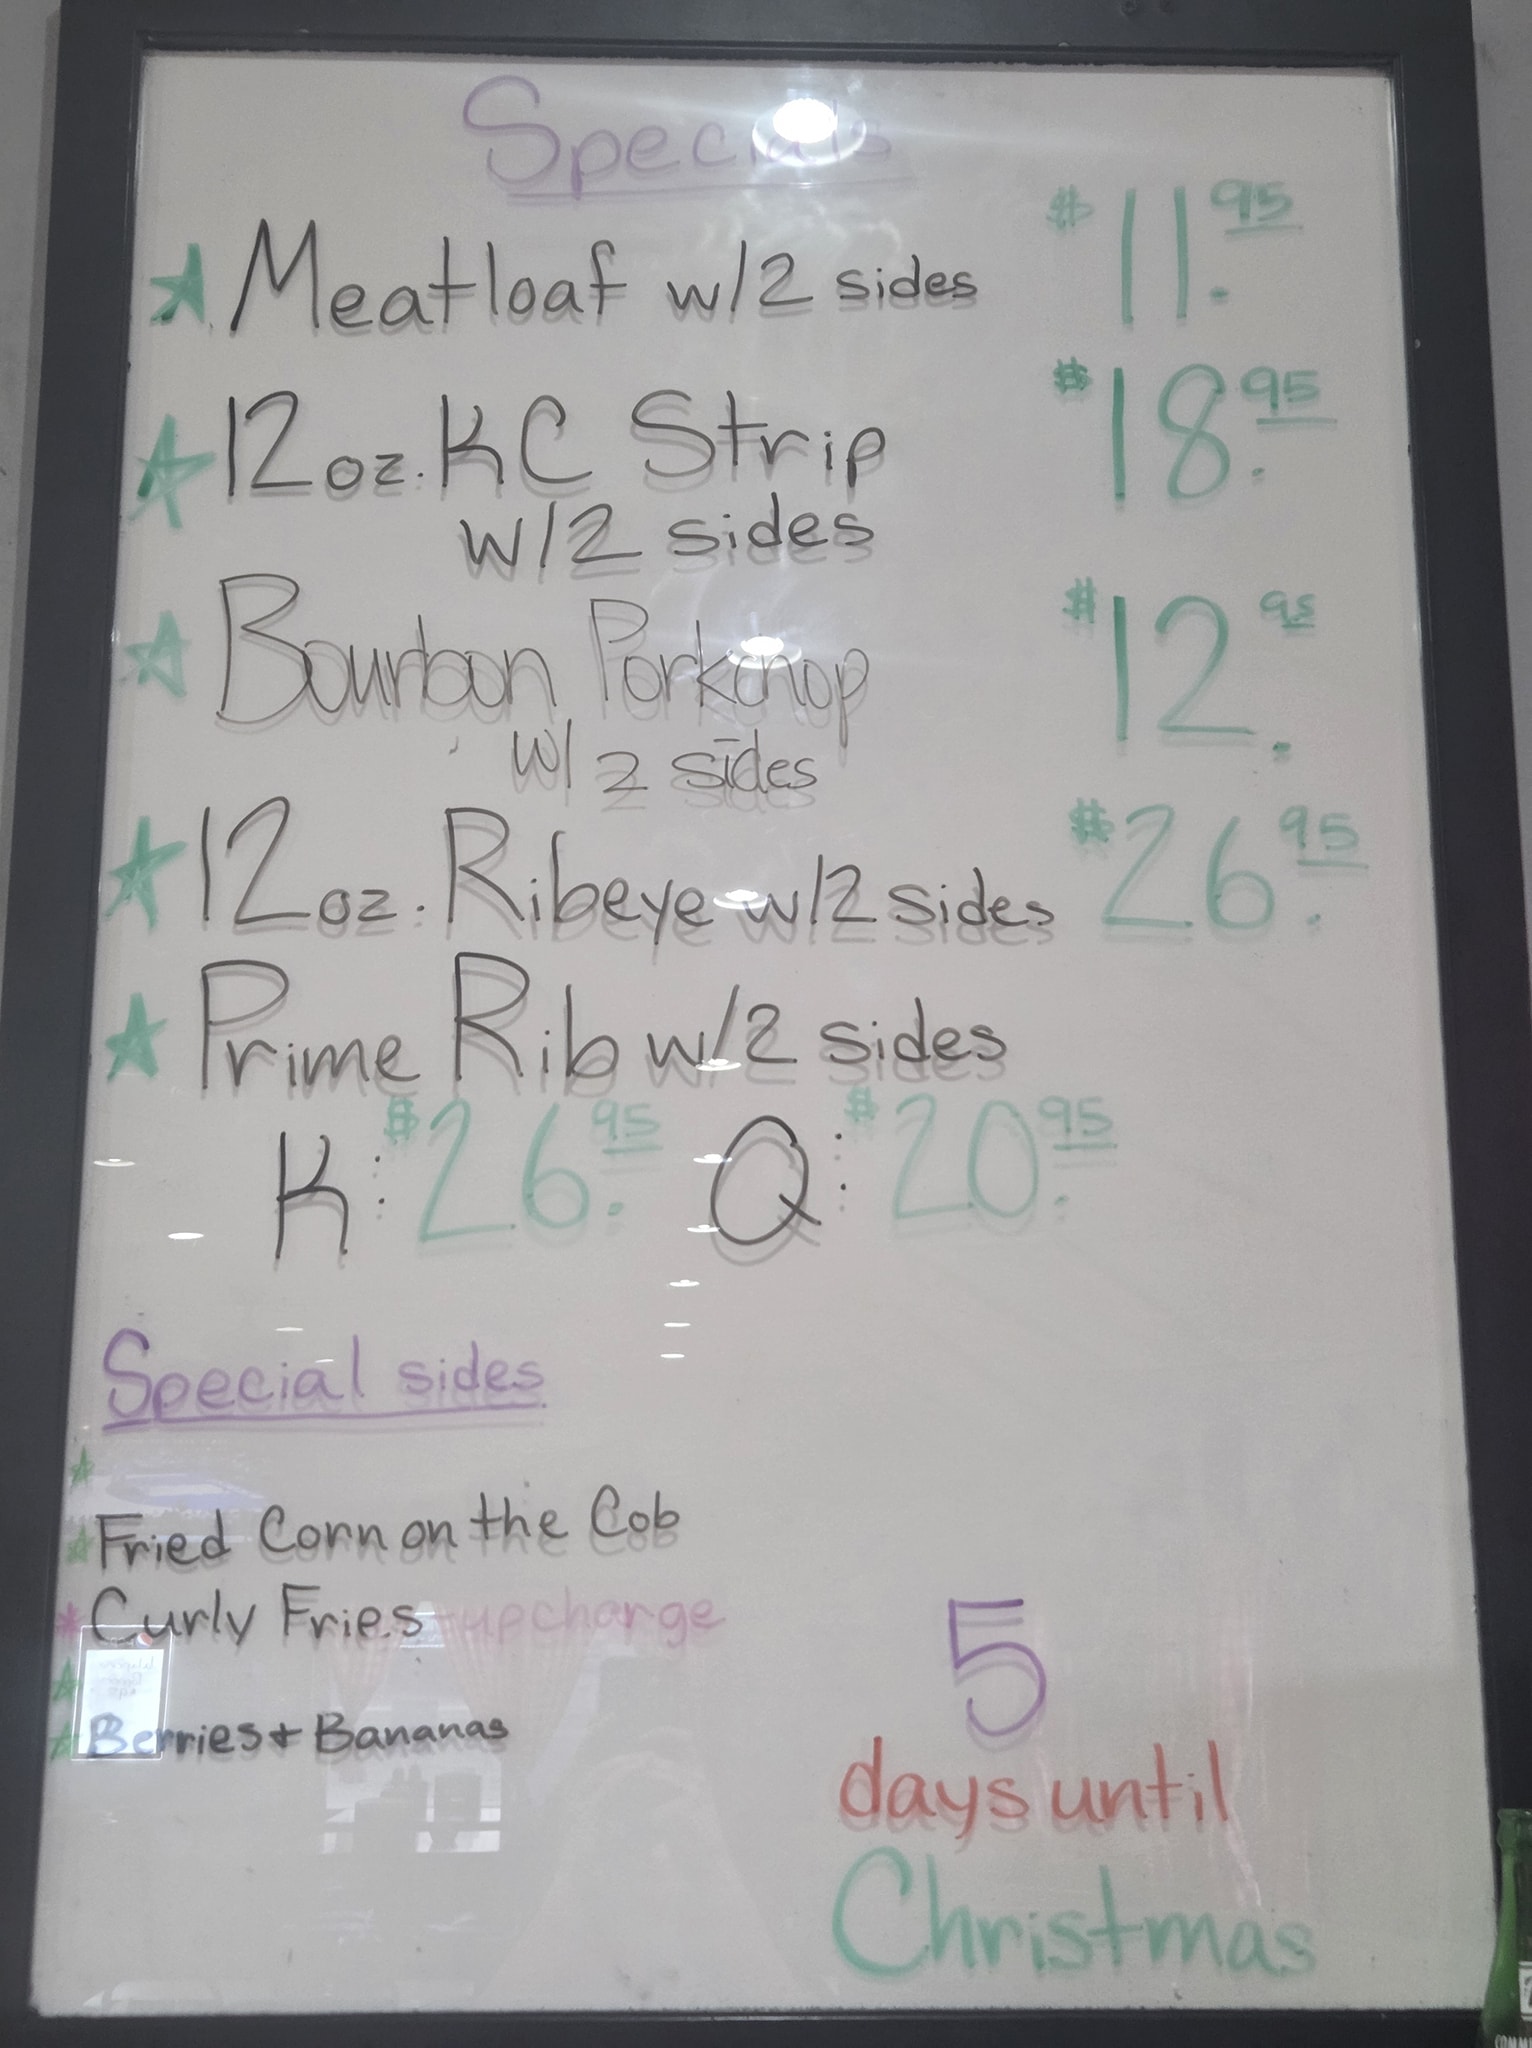 Specials
Meatloaf w/2 sides $11.95
12oz. KC Strip $18.95
w/2 sides
Bourbon Porkchop $12.95
w/ 2 sides
12oz. Ribeye w/2 sides $26.95
Prime Rib w/2 sides
K: $26.95 Q: $20.95
Special sides
Fried Corn on the Cob
Curly Fries +upcharge
Berries + Bananas
5
days until
Christmas